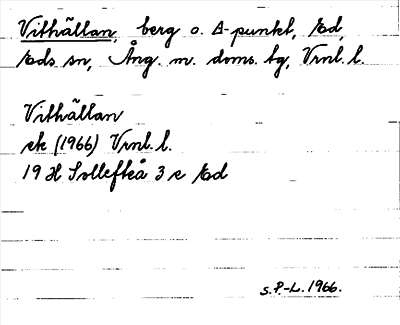 Vithällan, berg o. Δ-punkt, Ed,
Eds sn, Ång. m. doms. tg, Vrnl. l.
Vithällan
ek (1966) Vrnl. l.
19 H Sollefteå 3 e Ed
S.P.-L. 1966.